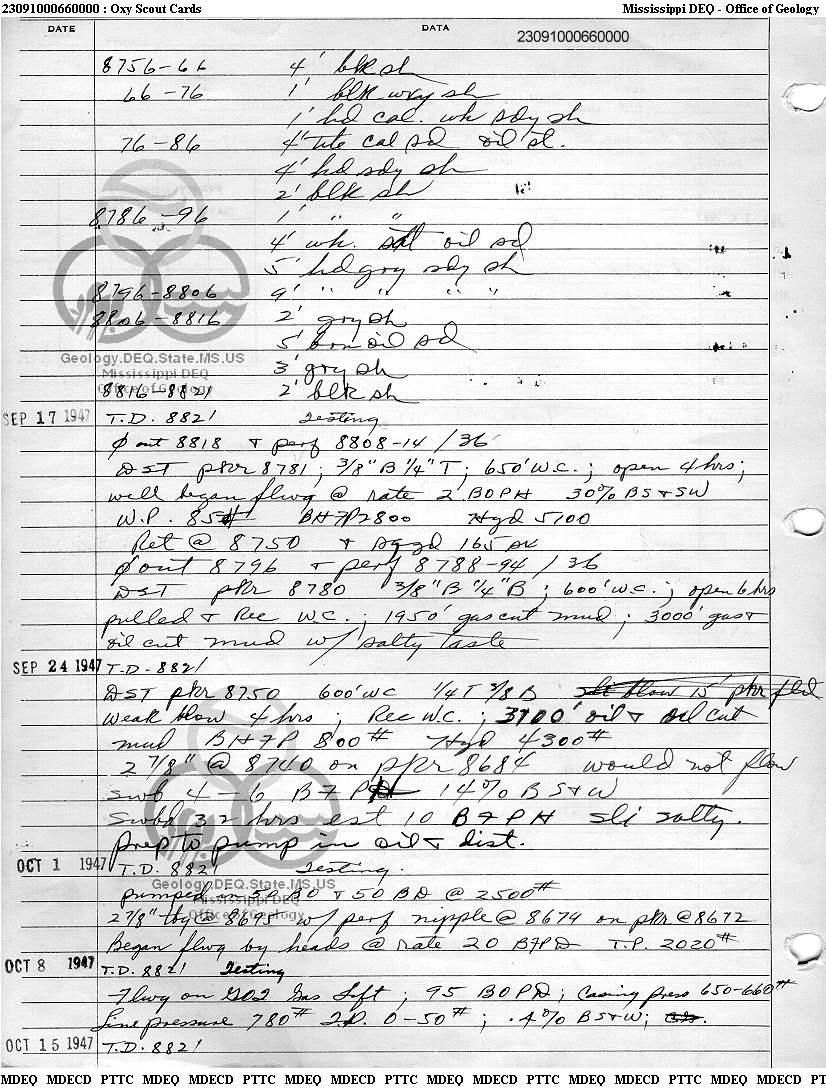 23091000660000 : Oxy Scout Cards Mississippi DEQ - Office of Geology
DATE DATA 23091000660000
8756-66 4' blk sh
66-76 1' blk wxy sh
1' hd cal. wh sdy sh
76-86 4' tite cal sd oil st.
4' hd sdy sh
2' blk sh
8786-96 1' " "
4' wh. oil sd
5' hd gry sdy sh
8796-8806 9' " " " "
8806-8816 2' gry sh
5' brn oil sd
3' gry sh
8816-8821 2' blk sh
SEP 17 1947 T.D. 8821 Testing
Ø out 8818 & perf 8808-14 / 36
DST pkr 8781; 3/8" B 1/4" T; 650' W.C.; open 4 hrs;
well began flwg @ rate 2 BOPH 30% BS&SW
W.P. 85# BHFP 2800 Hyd 5100
Ret @ 8750 & sqzd 165 sx
Ø out 8796 & perf 8788-94 / 36
DST pkr 8780 3/8" B 1/4" B; 600' W.C.; open 6 hrs
pulled & Rec W.C.; 1950' gas cut mud; 3000' gas &
oil cut mud w/ salty taste
SEP 24 1947 T.D. 8821
DST pkr 8750 600' WC 1/4 T 3/8 B sli blow 15' pkr fld
weak blow 4 hrs; Rec W.C.; 3700' oil & oil cut
mud BHFP 800# Hyd 4300#
2 7/8" @ 8740 on pkr 8684 would not flow
swb 4-6 BFPH 14% BS&W
Swbd 32 hrs est 10 BFPH sli salty.
prep to pump in oil & dist.
OCT 1 1947 T.D. 8821 Testing.
pumped in 50 BO & 50 BD @ 2500#
2 7/8" tbg @ 8695 w/ perf nipple @ 8674 on pkr @ 8672
Began flwg by heads @ rate 20 BFPD T.P. 2020#
OCT 8 1947 T.D. 8821 Testing
Flwg on Gas Lift; 95 BOPD; Casing press 650-660#
Line pressure 780# T.P. 0-50#; .4% BS&W;
OCT 15 1947 T.D. 8821
Geology.DEQ.State.MS.US
Mississippi DEQ
Office of Geology
Geology.DEQ.State.MS.US
Mississippi DEQ
Office of Geology
MDEQ MDECD PTTC MDEQ MDECD PTTC MDEQ MDECD PTTC MDEQ MDECD PTTC MDEQ MDECD PTTC MDEQ MDECD PT